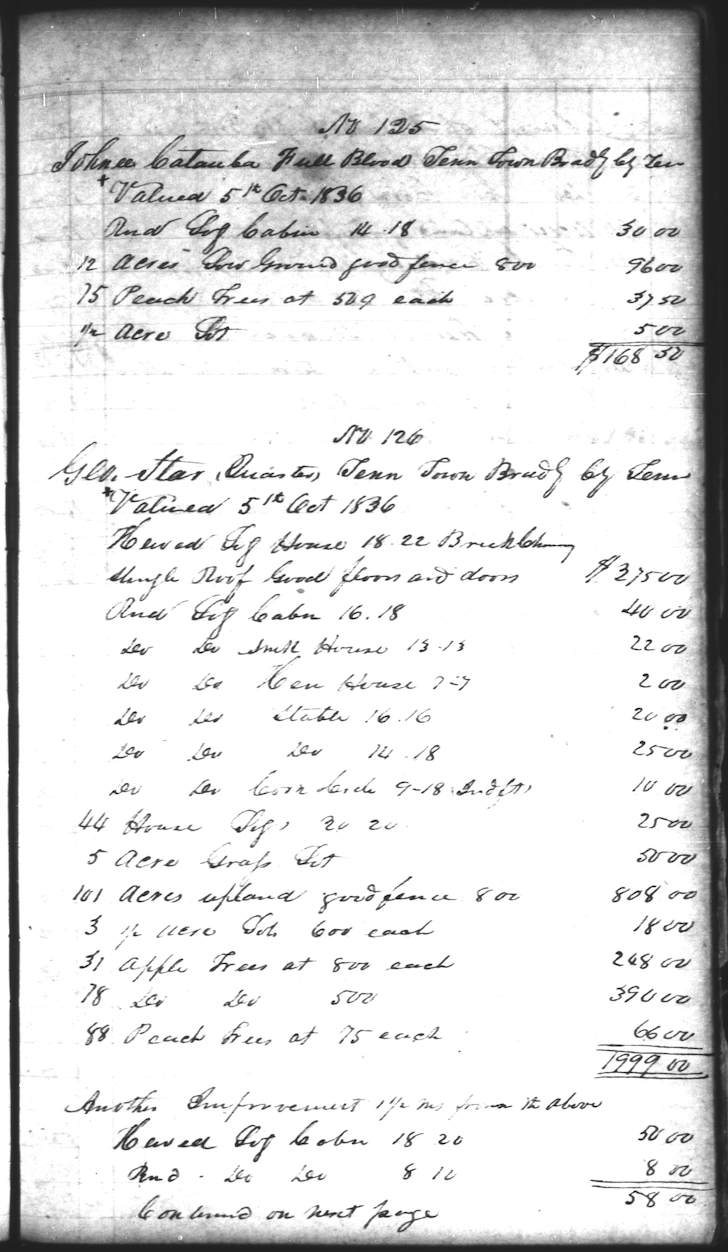 No 125
Johnee Catauba Full Blood Tenn Town Bradly Cy Ten
+ Valued 5th Oct 1836
Rnd Log Cabin 14.18 30 00
12 Acres Low Ground good fence 800 96 00
75 Peach Trees at 50 each 37 50
1/2 Acre Lot 5 00
$168 50
No 126
Geo. Star (Quarter) Tenn Town Bradly Cy Tenn
+ Valued 5th Oct 1836
Hewed Log House 18.22 Brick Chimny
shingle Roof Good floors and doors $ 275 00
Rnd Log Cabn 16.18 40 00
Do Do Smk House 13.13 22 00
Do Do Hen House 7-7 2 00
Do Do Stable 16.16 20 00
Do Do Do 14.18 25 00
Do Do Corn Crib 9-18 10 00
44 House Logs 20 20 25 00
5 Acre Grass Lot 50 00
101 Acres upland good fence 800 808 00
3 1/2 acre Lots 600 each 18 00
31 Apple Trees at 800 each 248 00
78 Do Do 500 390 00
88 Peach Trees at 75 each 66 00
1999 00
Another Improvement 1 1/2 ms from the above
Hewed Log Cabn 18 20 50 00
Rnd - Do Do 8 10 8 00
58 00
Continued on next page